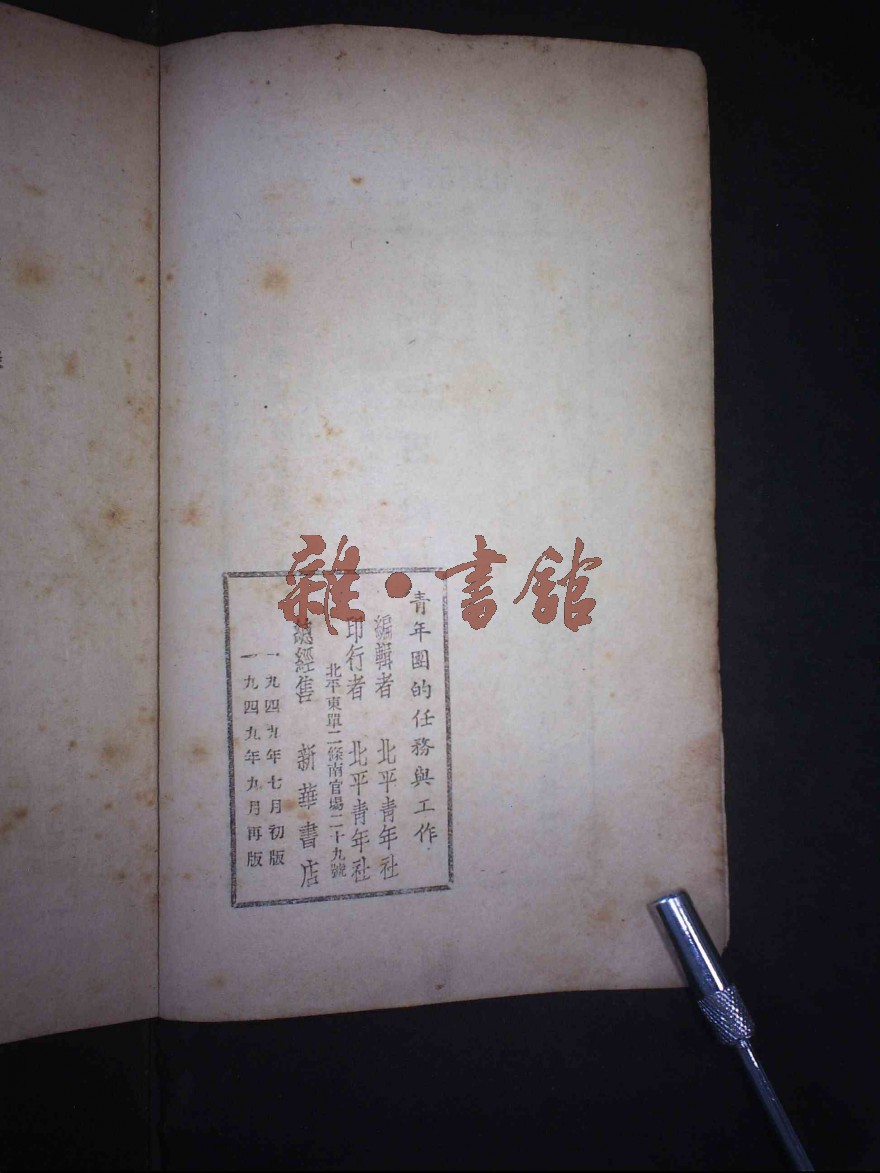 青年團的任務與工作
編輯者 北平青年社
印行者 北平青年社
北平東單二條南官場二十九號
總經售 新華書店
一九四九年七月初版
一九四九年九月再版
雜·書館